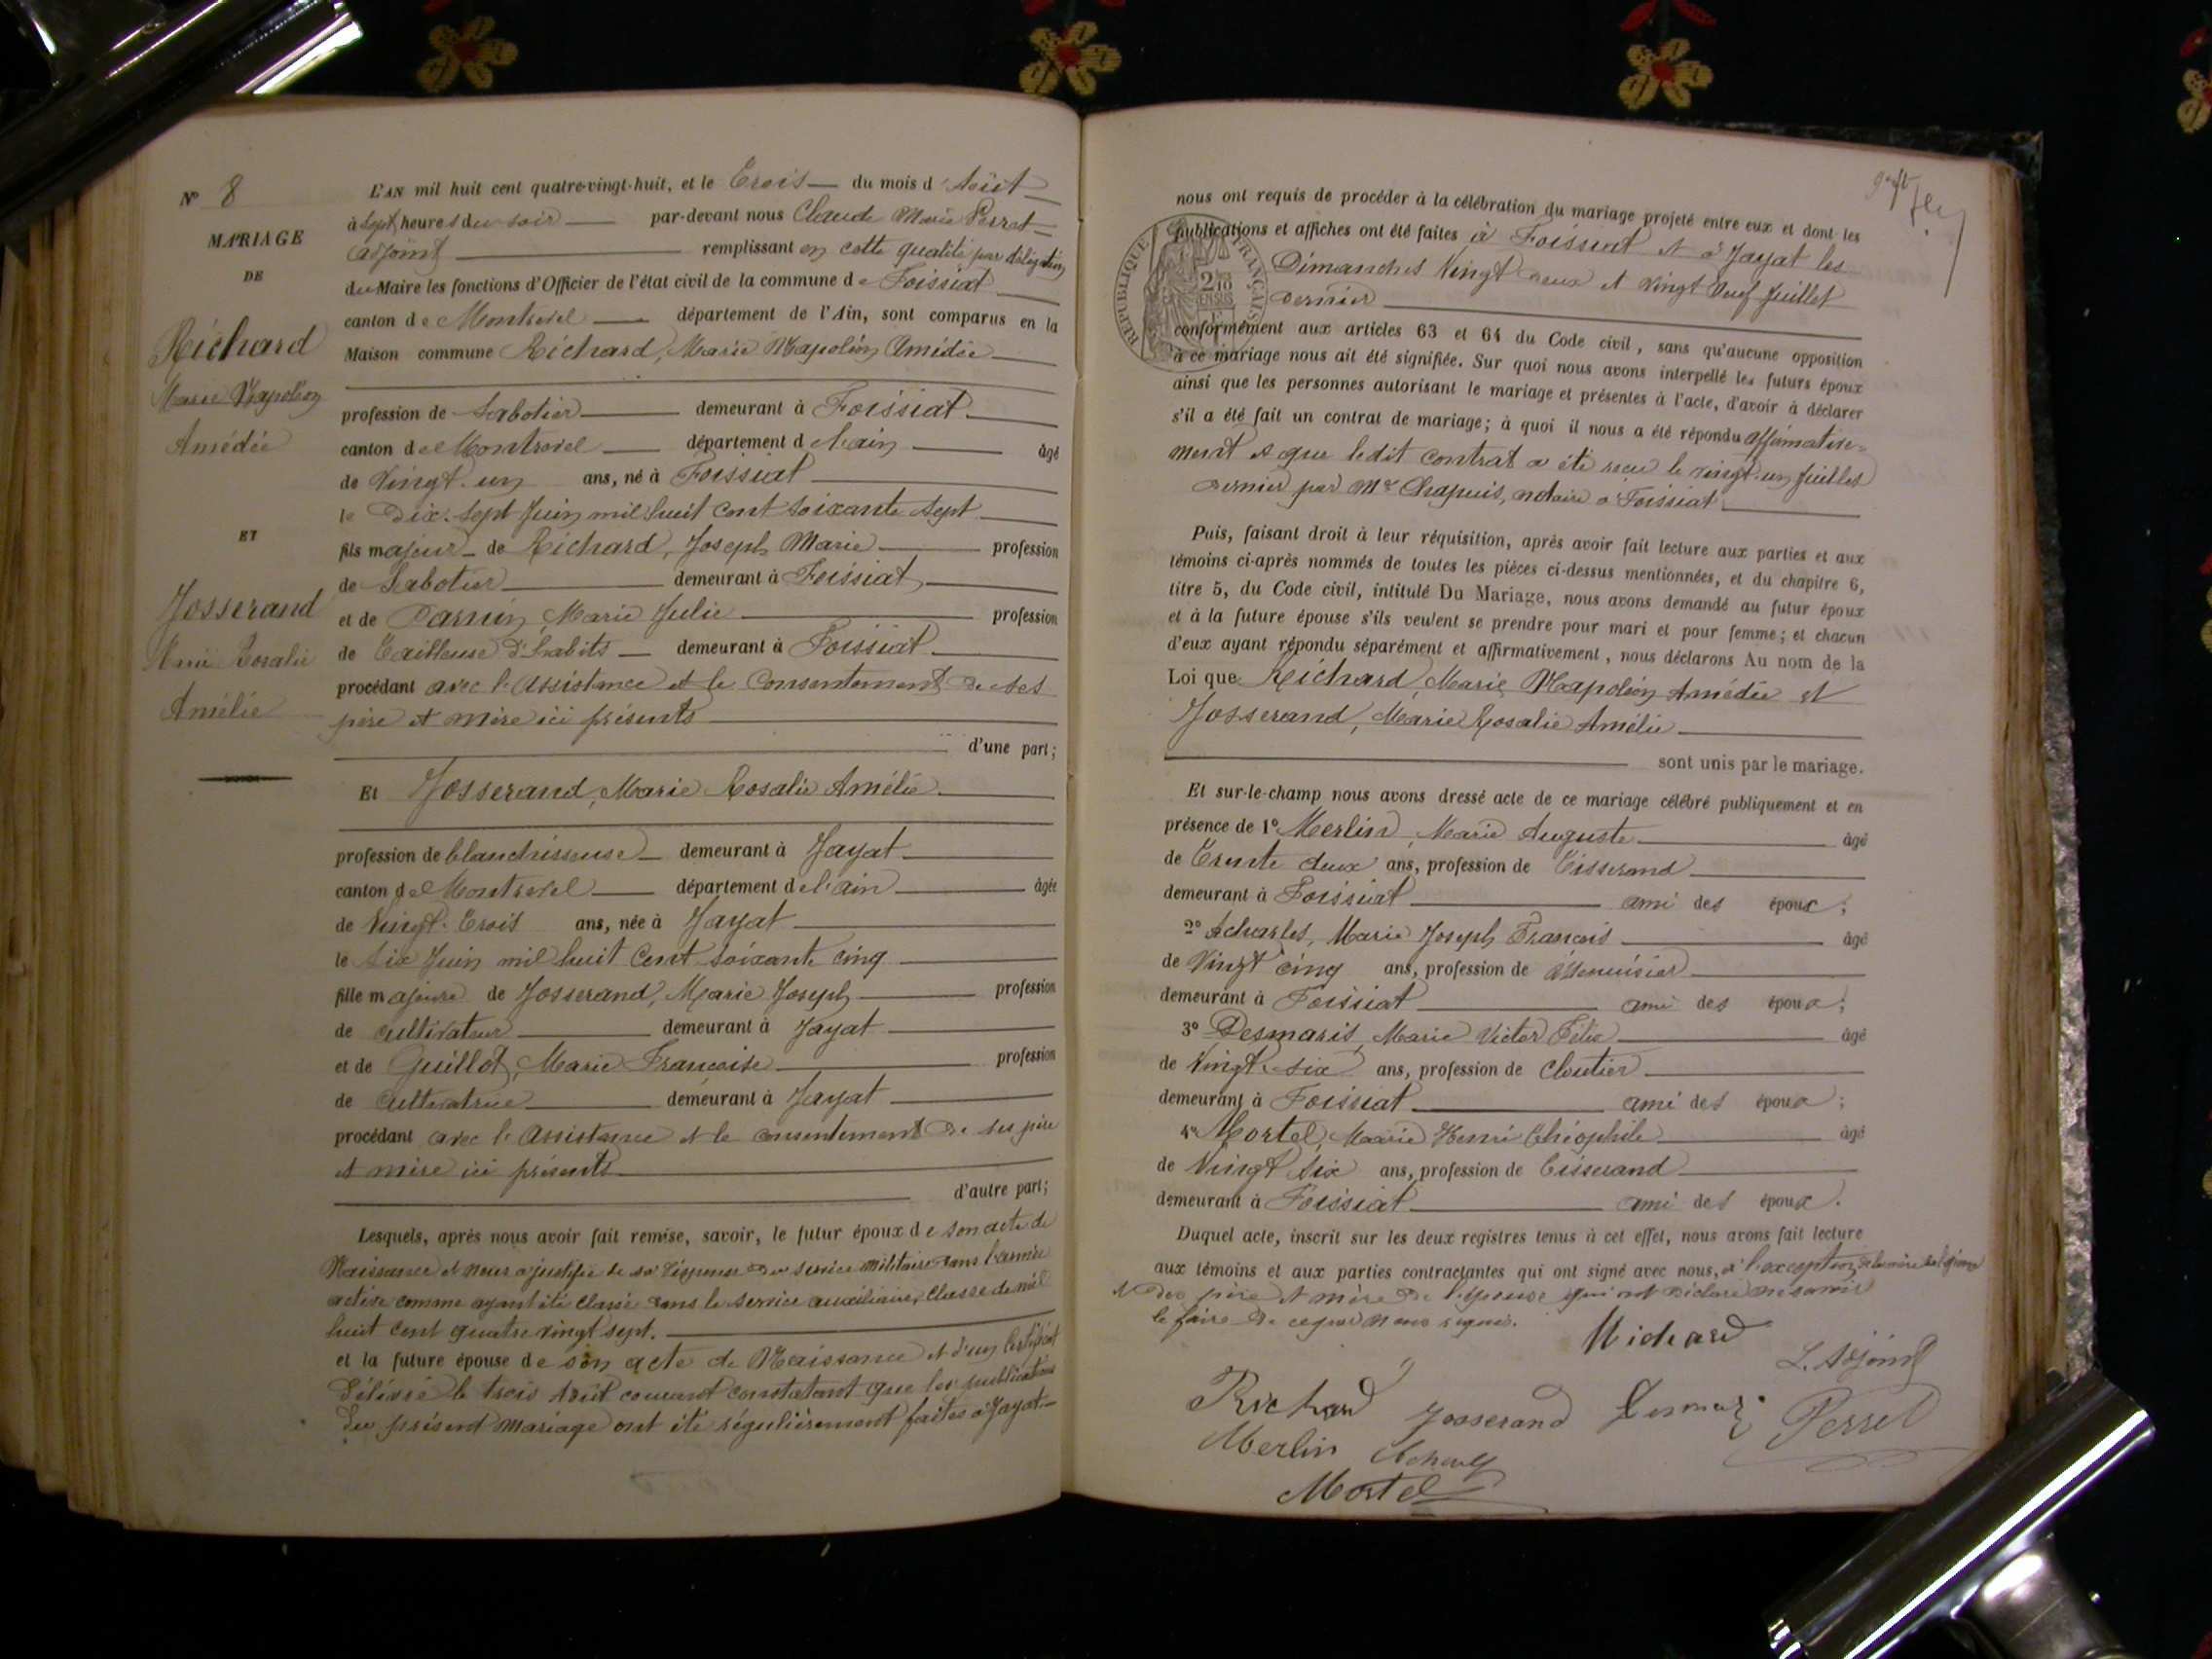 N° 8
MARIAGE
DE
Richard
Marie Napoléon
Amédée
ET
Josserand
Marie Rosalie
Amélie
L'AN mil huit cent quatre-vingt-huit, et le Trois du mois d'Août
à Sept heures du soir par-devant nous Claude Marie Perret
adjoint remplissant en cette qualité par délégation
du Maire les fonctions d'Officier de l'état civil de la commune de Foissiat
canton de Montrevel département de l'Ain, sont comparus en la
Maison commune Richard, Marie Napoléon Amédée
profession de Sabotier demeurant à Foissiat
canton de Montrevel département de l'ain âgé
de Vingt-un ans, né à Foissiat
le Dix-Sept Juin mil huit cent soixante sept
fils majeur de Richard, Joseph Marie profession
de Sabotier demeurant à Foissiat
et de Parnin, Marie Julie profession
de Tailleuse d'habits demeurant à Foissiat
procédant avec l'Assistance et le Consentement de ses
père et mère ici présents
d'une part;
Et Josserand, Marie Rosalie Amélie
profession de blanchisseuse demeurant à Jayat
canton de Montrevel département de l'ain âgée
de Vingt-Trois ans, née à Jayat
le Six Juin mil huit Cent Soixante cinq
fille majeure de Josserand, Marie Joseph profession
de cultivateur demeurant à Jayat
et de Guillot, Marie Françoise profession
de cultivatrice demeurant à Jayat
procédant avec l'Assistance et le consentement de ses père
et mère ici présents
d'autre part;
Lesquels, après nous avoir fait remise, savoir, le futur époux de son acte de
Naissance et nous a justifié de sa dispense du service militaire dans l'armée
active comme ayant été classé dans le service auxiliaire, Classe de mil
huit cent quatre vingt sept.
et la future épouse de son acte de Naissance et d'un Certificat
délivré le trois Août courant constatant que les publications
du présent mariage ont été régulièrement faites à Jayat
nous ont requis de procéder à la célébration du mariage projeté entre eux et dont les
publications et affiches ont été faites à Foissiat et à Jayat les
Dimanches Vingt deux et Vingt Neuf Juillet
dernier
RÉPUBLIQUE FRANÇAISE
2/10
EN SUS
conformément aux articles 63 et 64 du Code civil, sans qu'aucune opposition
à ce mariage nous ait été signifiée. Sur quoi nous avons interpellé les futurs époux
ainsi que les personnes autorisant le mariage et présentes à l'acte, d'avoir à déclarer
s'il a été fait un contrat de mariage; à quoi il nous a été répondu affirmative-
ment et que ledit contrat a été reçu le vingt-un Juillet
dernier par Me Chapuis, notaire à Foissiat
Puis, faisant droit à leur réquisition, après avoir fait lecture aux parties et aux
témoins ci-après nommés de toutes les pièces ci-dessus mentionnées, et du chapitre 6,
titre 5, du Code civil, intitulé Du Mariage, nous avons demandé au futur époux
et à la future épouse s'ils veulent se prendre pour mari et pour femme; et chacun
d'eux ayant répondu séparément et affirmativement, nous déclarons Au nom de la
Loi que Richard, Marie Napoléon Amédée et
Josserand, Marie Rosalie Amélie
sont unis par le mariage.
Et sur-le-champ nous avons dressé acte de ce mariage célébré publiquement et en
présence de 1° Merlin, Marie Auguste âgé
de Trente deux ans, profession de Tisserand
demeurant à Foissiat ami des époux;
2° Acharles, Marie Joseph François âgé
de Vingt cinq ans, profession de Menuisier
demeurant à Foissiat ami des époux;
3° Desmaris, Marie Victor Félix âgé
de Vingt-six ans, profession de Cloutier
demeurant à Foissiat ami des époux;
4° Mortel, Marie Henri Théophile âgé
de Vingt Six ans, profession de Tisserand
demeurant à Foissiat ami des époux.
Duquel acte, inscrit sur les deux registres tenus à cet effet, nous avons fait lecture
aux témoins et aux parties contractantes qui ont signé avec nous, à l'exception de la mère de l'époux
et des père et mère de l'épouse qui ont déclaré ne savoir
le faire de ce par nous requis.
Richard
L'Adjoint
Richard Josserand Desmaris Perret
Merlin Acharles
Mortel